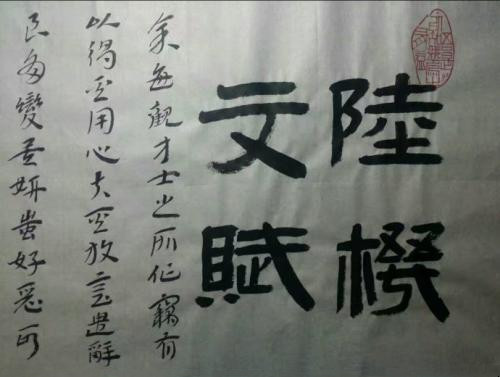 陸機
文賦
余每觀才士之所作竊有
以得其用心夫其放言遣辭
良多變矣妍蚩好惡可